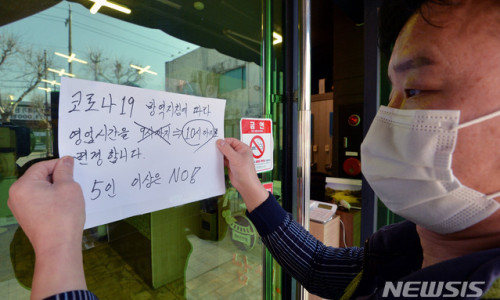 코로나19 방역지침에 따라
영업시간을 9시까지 ⇒ 10시까지
변경 합니다.
5인 이상은 NO!
금연
NEWSIS